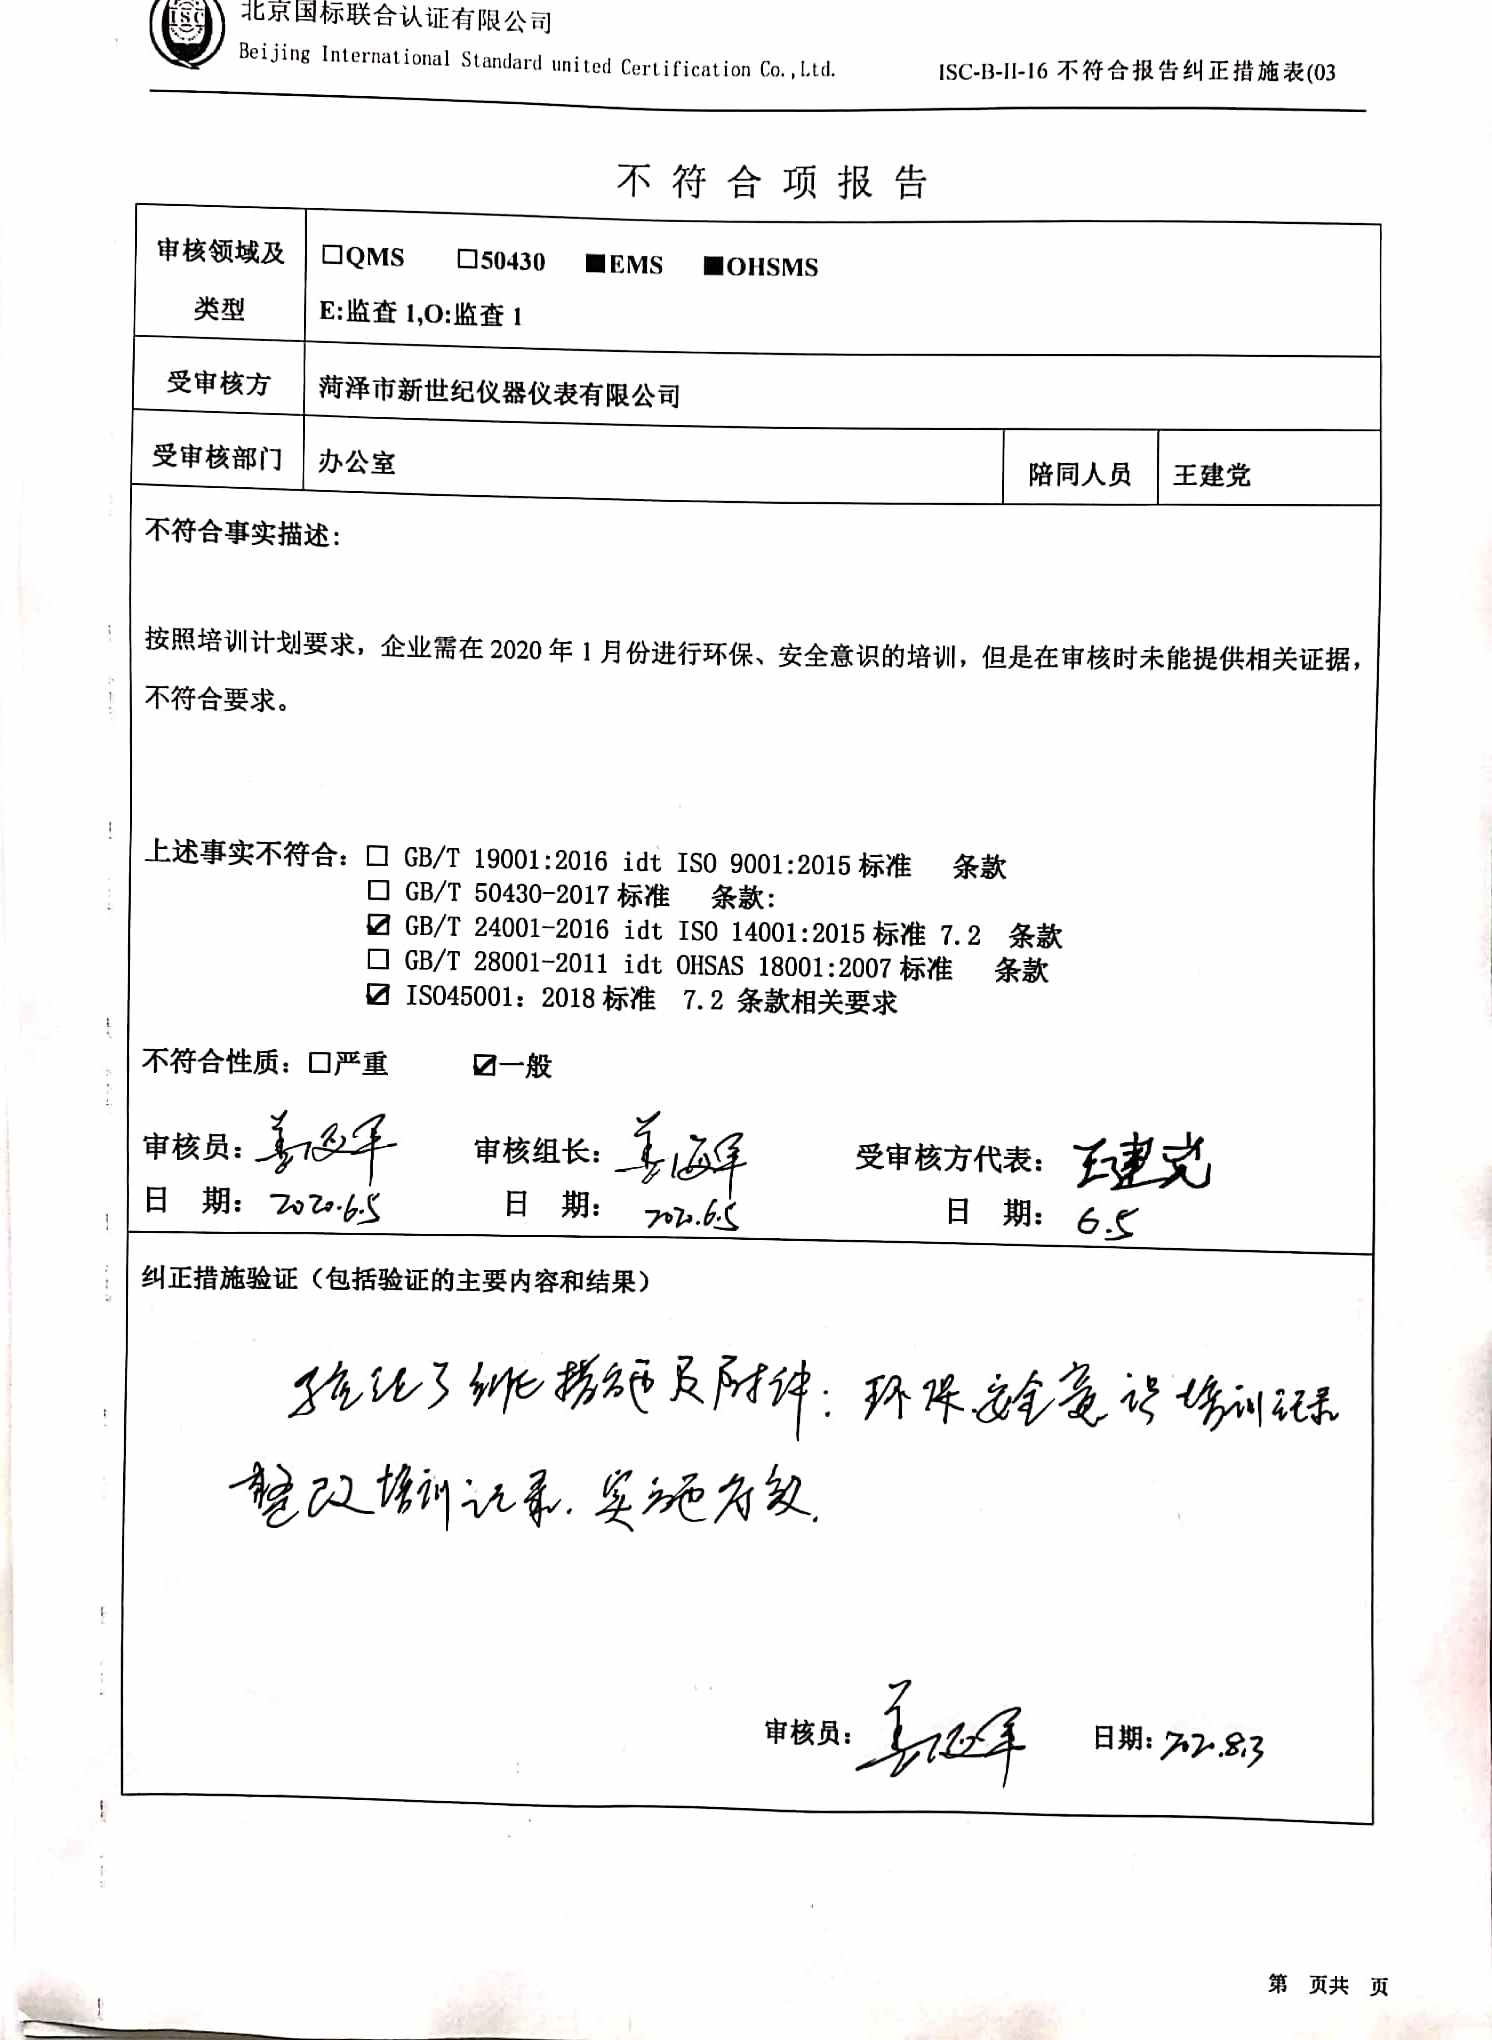 ISC
北京国标联合认证有限公司
Beijing International Standard united Certification Co.,Ltd.
ISC-B-II-16 不符合报告纠正措施表(03
不符合项报告
审核领域及类型
□QMS □50430 ■EMS ■OHSMS
E:监查 1,O:监查 1
受审核方
菏泽市新世纪仪器仪表有限公司
受审核部门
办公室
陪同人员
王建党
不符合事实描述:
按照培训计划要求，企业需在 2020 年 1 月份进行环保、安全意识的培训，但是在审核时未能提供相关证据，
不符合要求。
上述事实不符合：□ GB/T 19001:2016 idt ISO 9001:2015 标准 条款
□ GB/T 50430-2017 标准 条款:
☑ GB/T 24001-2016 idt ISO 14001:2015 标准 7.2 条款
□ GB/T 28001-2011 idt OHSAS 18001:2007 标准 条款
☑ ISO45001：2018 标准 7.2 条款相关要求
不符合性质：□严重 ☑一般
审核员: 姜海军 审核组长: 姜海军 受审核方代表: 王建党
日 期: 2020.6.5 日 期: 2020.6.5 日 期: 6.5
纠正措施验证（包括验证的主要内容和结果）
验证了纠正措施及附件：环保、安全意识培训记录
整改培训记录. 实施有效.
审核员: 姜海军 日期: 2020.8.3
第 页共 页